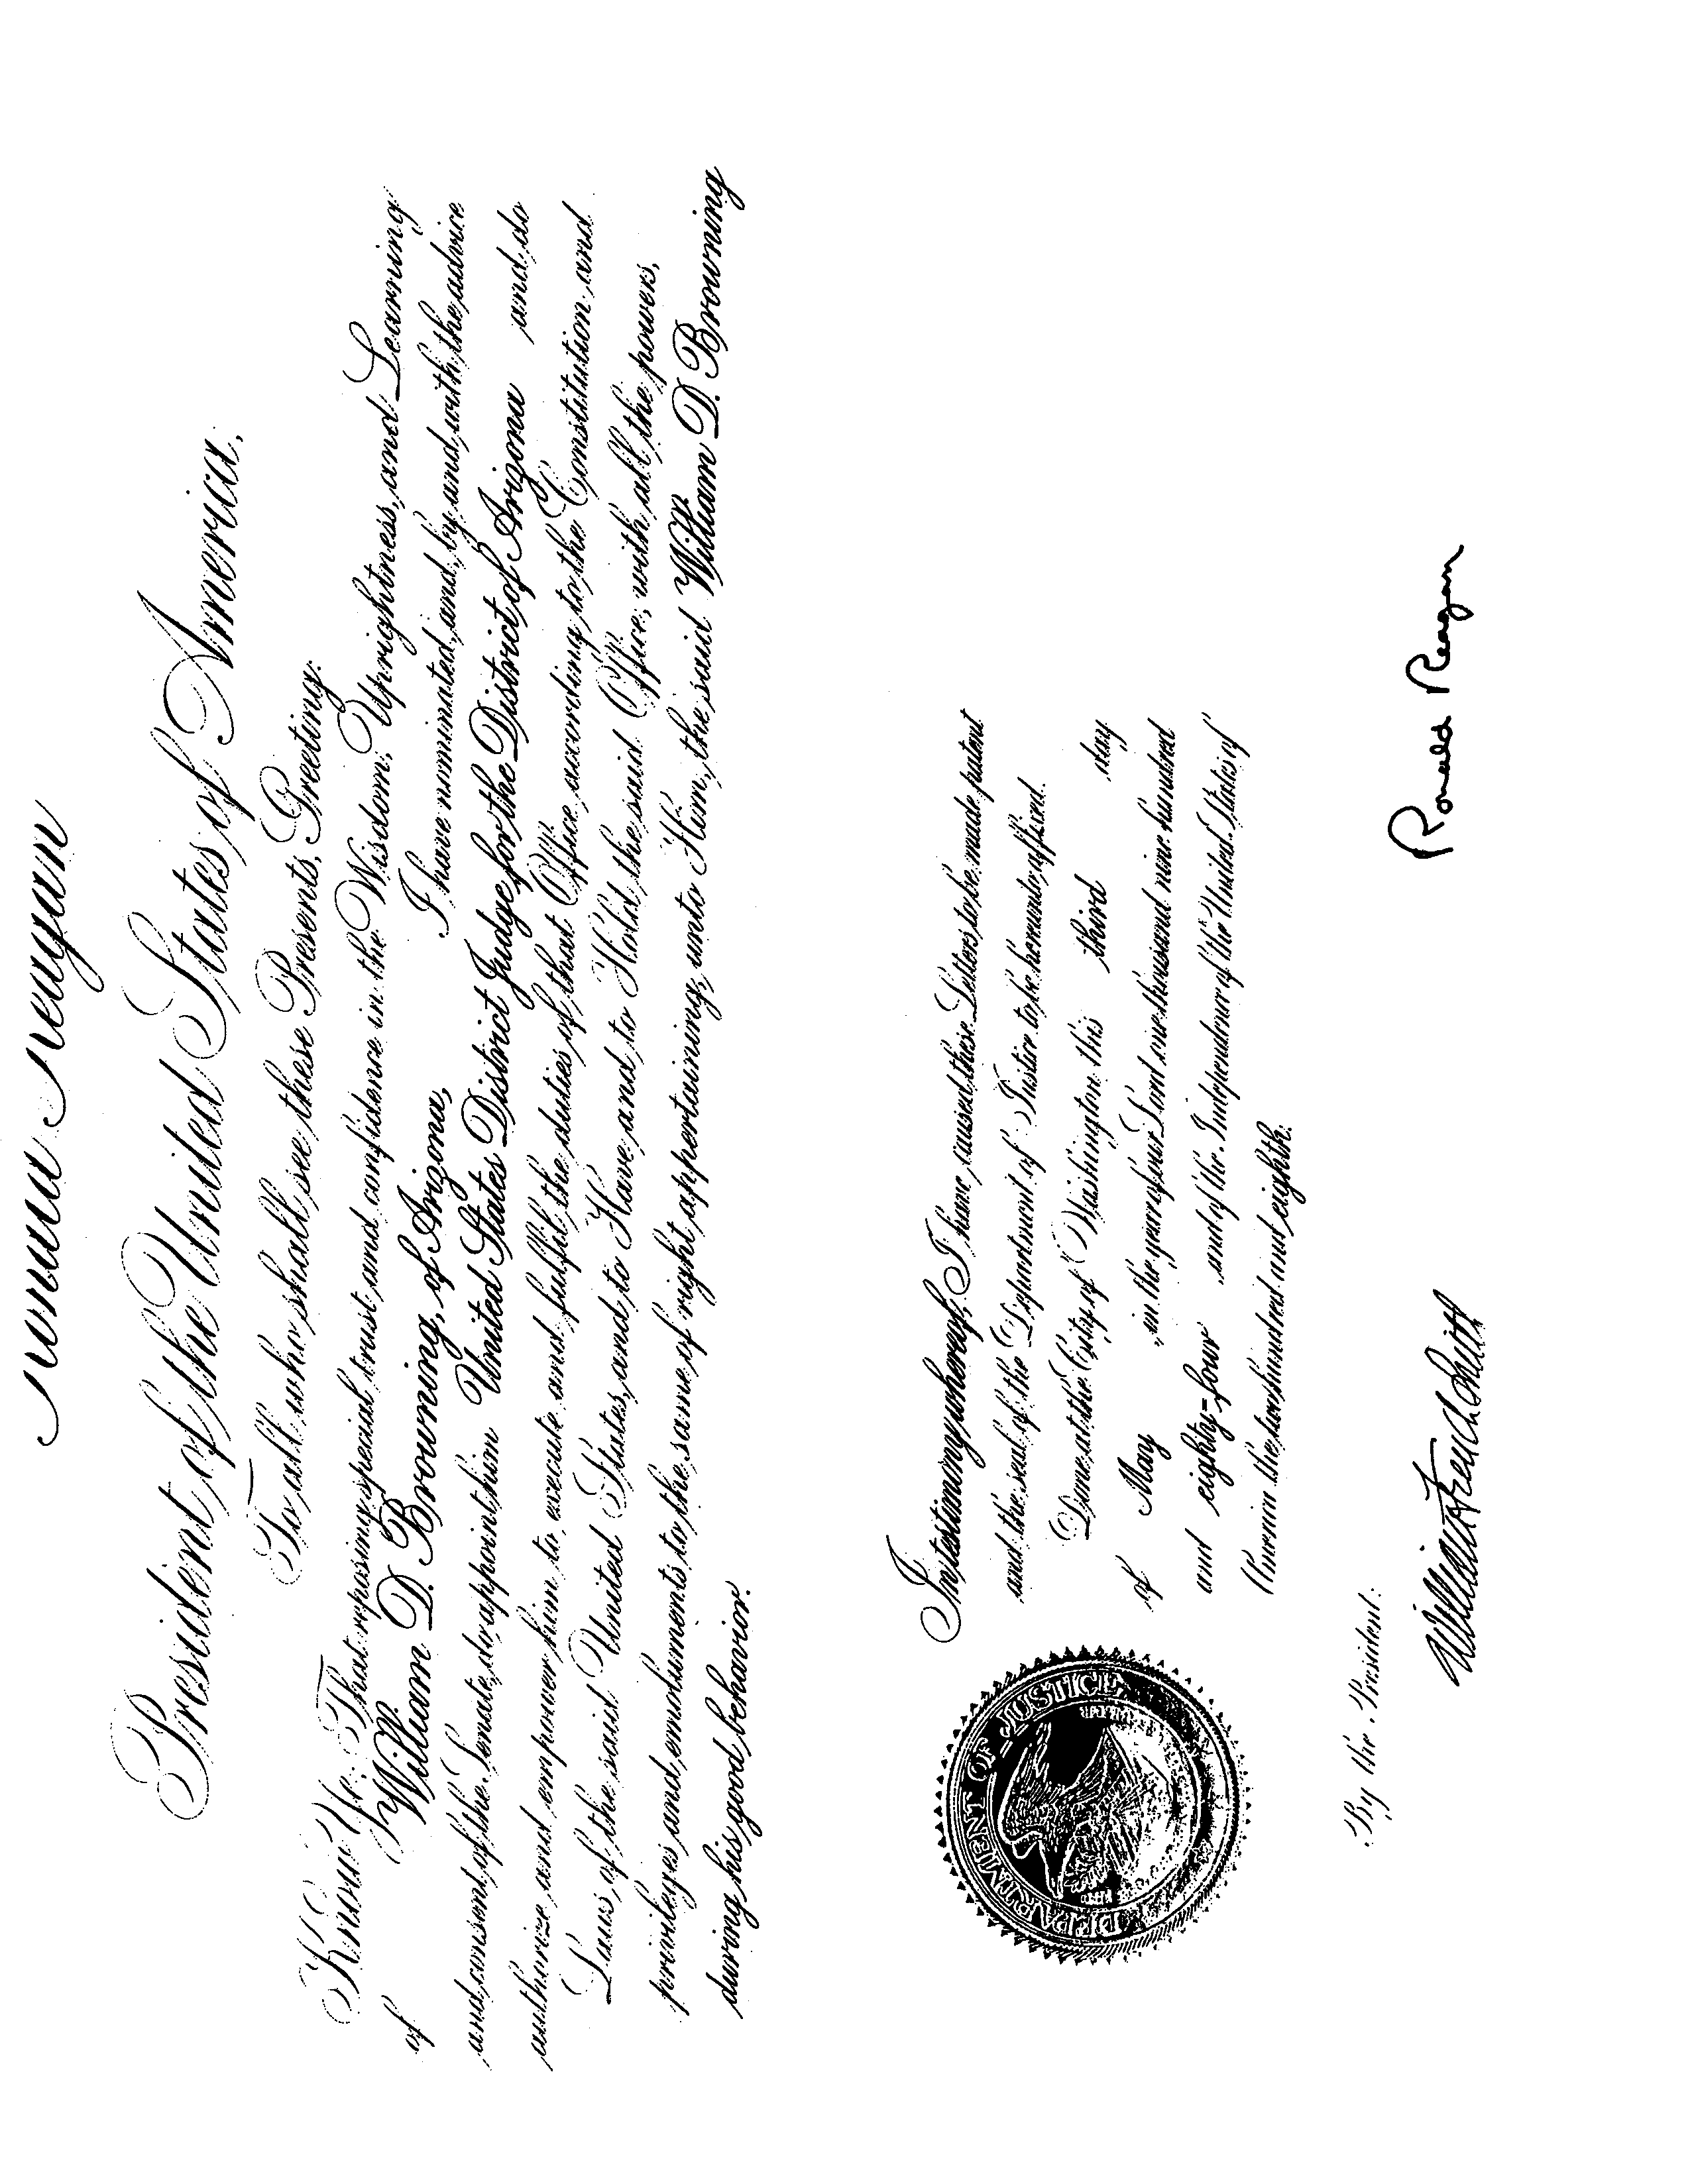 Ronald Reagan
President of the United States of America,
To all who shall see these Presents, Greeting:
Know Ye; That reposing special trust and confidence in the Wisdom, Uprightness, and Learning
of William D. Browning, of Arizona, I have nominated, and, by and with the advice
and consent of the Senate, do appoint him United States District Judge for the District of Arizona and do
authorize and empower him to execute and fulfil the duties of that Office according to the Constitution and
Laws of the said United States, and to Have and to Hold the said Office, with all the powers,
privileges and emoluments to the same of right appertaining, unto Him, the said William D. Browning
during his good behavior.
In testimony whereof, I have caused these Letters to be made patent
and the seal of the Department of Justice to be hereunto affixed.
Done at the City of Washington this third day
of May in the year of our Lord one thousand nine hundred
and eighty-four and of the Independence of the United States of
America the two hundred and eighth.
DEPARTMENT OF JUSTICE
Ronald Reagan
By the President:
William French Smith